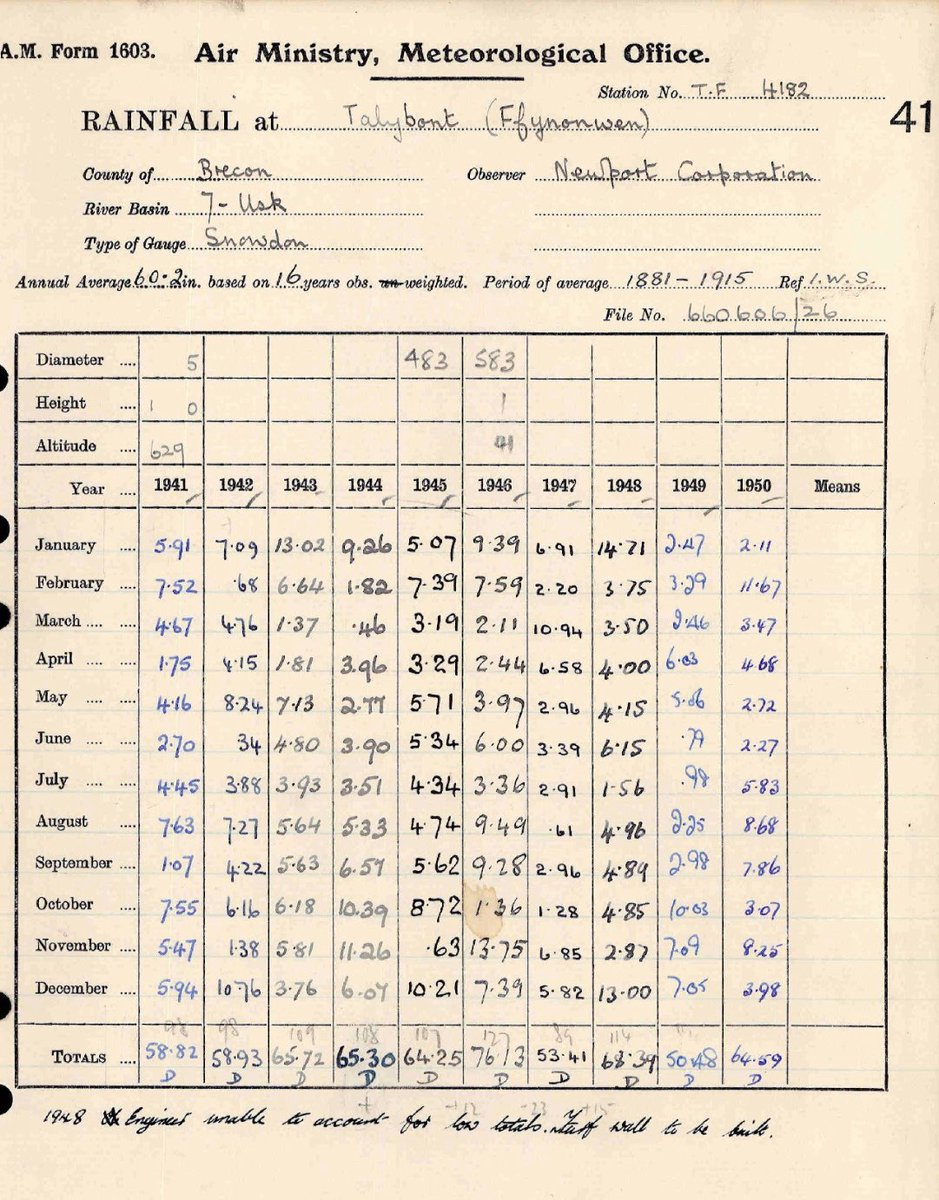 A.M. Form 1603. Air Ministry, Meteorological Office.
Station No. T.F 4182
41
RAINFALL at Talybont (Ffynonwen)
County of Brecon Observer Newport Corporation
River Basin 7 - Usk
Type of Gauge Snowdon
Annual Average 60.2 in. based on 16 years obs. un weighted. Period of average 1881 - 1915 Ref I.W.S.
File No. 660606/26
Diameter .... 5 483 583
Height .... 1 0 1
Altitude .... 629 41
Year .... 1941 1942 1943 1944 1945 1946 1947 1948 1949 1950 Means
January .... 5.91 7.09 13.02 9.26 5.07 9.39 6.91 14.71 2.47 2.11
February .... 7.52 .68 6.64 1.82 7.39 7.59 2.20 3.75 3.29 11.67
March .... 4.67 4.76 1.37 .46 3.19 2.11 10.94 3.50 2.46 3.47
April .... .... 1.75 4.15 1.81 3.96 3.29 2.44 6.58 4.00 6.03 4.68
May .... .... 4.16 8.24 7.13 2.77 5.71 3.97 2.96 4.15 5.06 2.72
June .... .... 2.70 34 4.80 3.90 5.34 6.00 3.39 6.15 .79 2.27
July .... .... 4.45 3.88 3.93 3.51 4.34 3.36 2.91 1.56 .98 5.83
August .... 7.63 7.27 5.64 5.33 4.74 9.49 .61 4.96 2.25 8.68
September .... 1.07 4.22 5.63 6.57 5.62 9.28 2.96 4.89 2.98 7.86
October .... 7.55 6.16 6.18 10.39 8.72 1.36 1.28 4.85 10.03 3.07
November .... 5.47 1.38 5.81 11.26 .63 13.75 6.85 2.87 7.09 8.25
December .... 5.94 10.76 3.76 6.07 10.21 7.39 5.82 13.00 7.05 3.98
98 98 109 108 107 127 89 114
TOTALS .... 58.82 58.93 65.72 65.30 64.25 76.13 53.41 68.39 50.48 64.59
D D D D D D D D D D
+ +12 -23 +15
1948 Engineer unable to account for low totals. Turf wall to be built.